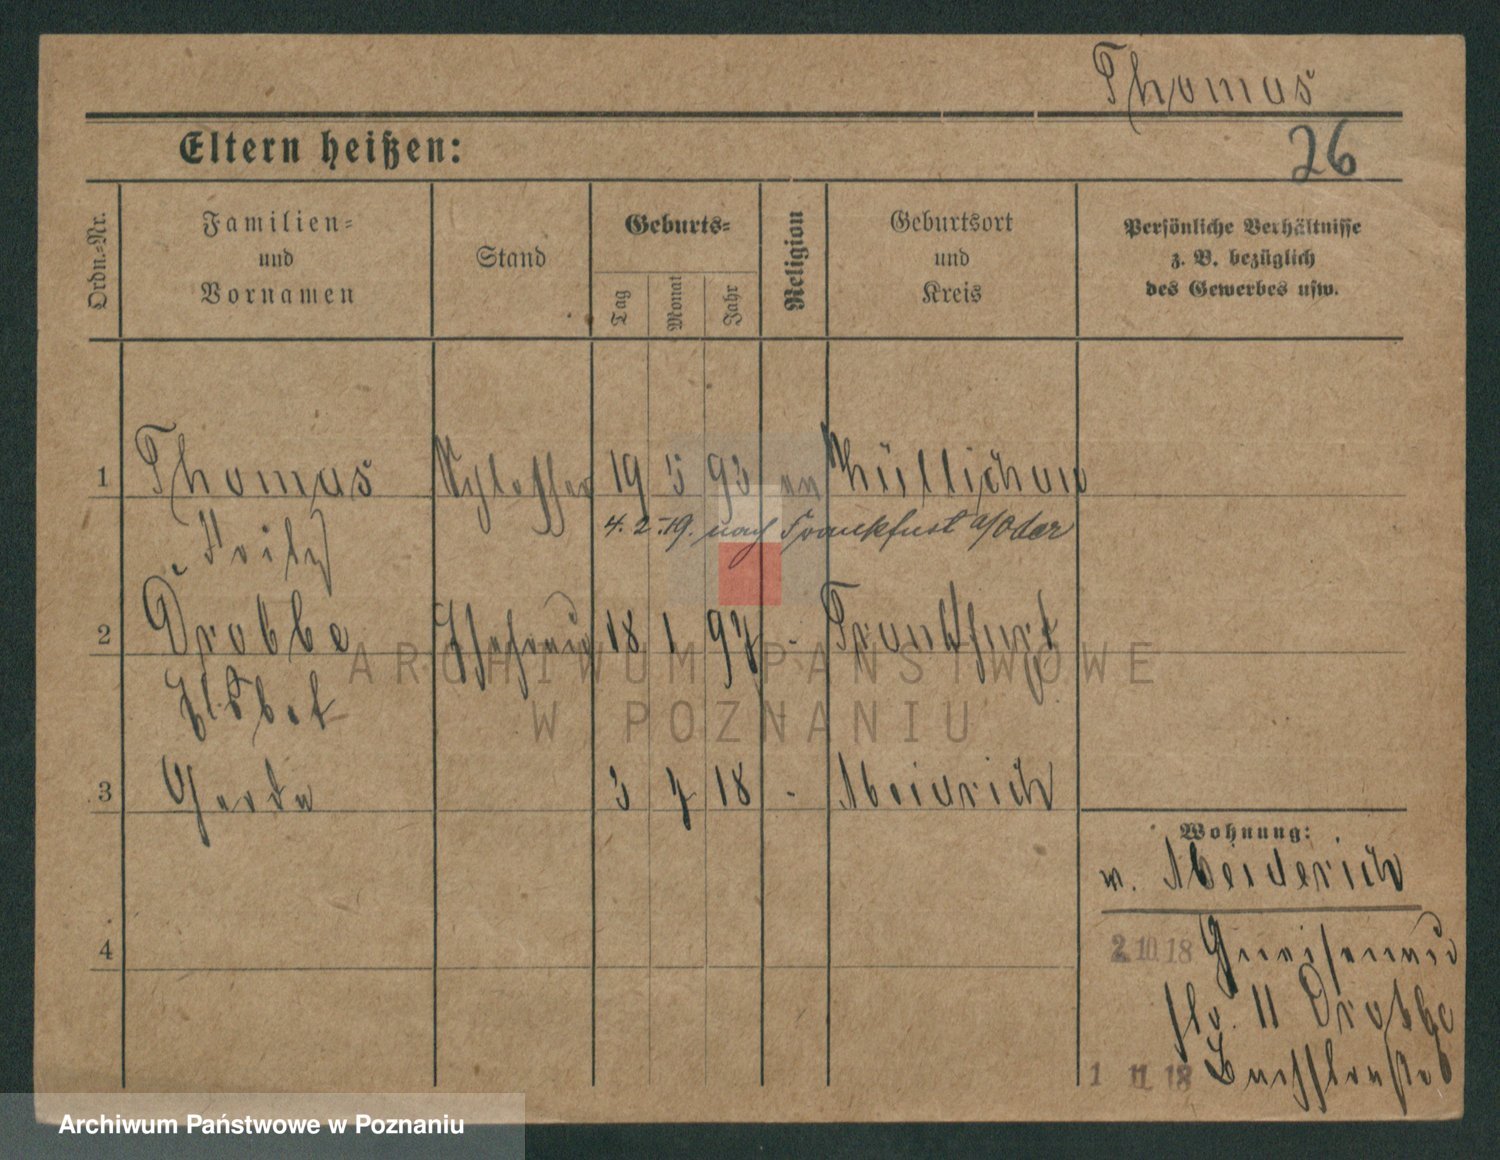 Thomas
26
Eltern heißen:
Ordn.-Nr.
Familien-
und
Vornamen
Stand
Geburts-
Tag
Monat
Jahr
Religion
Geburtsort
und
Kreis
Persönliche Verhältnisse
z. B. bezüglich
des Gewerbes usw.
1 Thomas Schlosser 19 5 93 ev Züllichau
Fritz
4. 2. 19. nach Frankfurt a/Oder
2 Drabbe Ehefrau 18 1 97 - Frankfurt
Elsbet
3 Gerda 3 7 18 - Meiderich
4
Wohnung:
w. Meiderich
2. 10. 18 Gneisenau
str. 11
1 11 18
ARCHIWUM PAŃSTWOWE
W POZNANIU
Archiwum Państwowe w Poznaniu